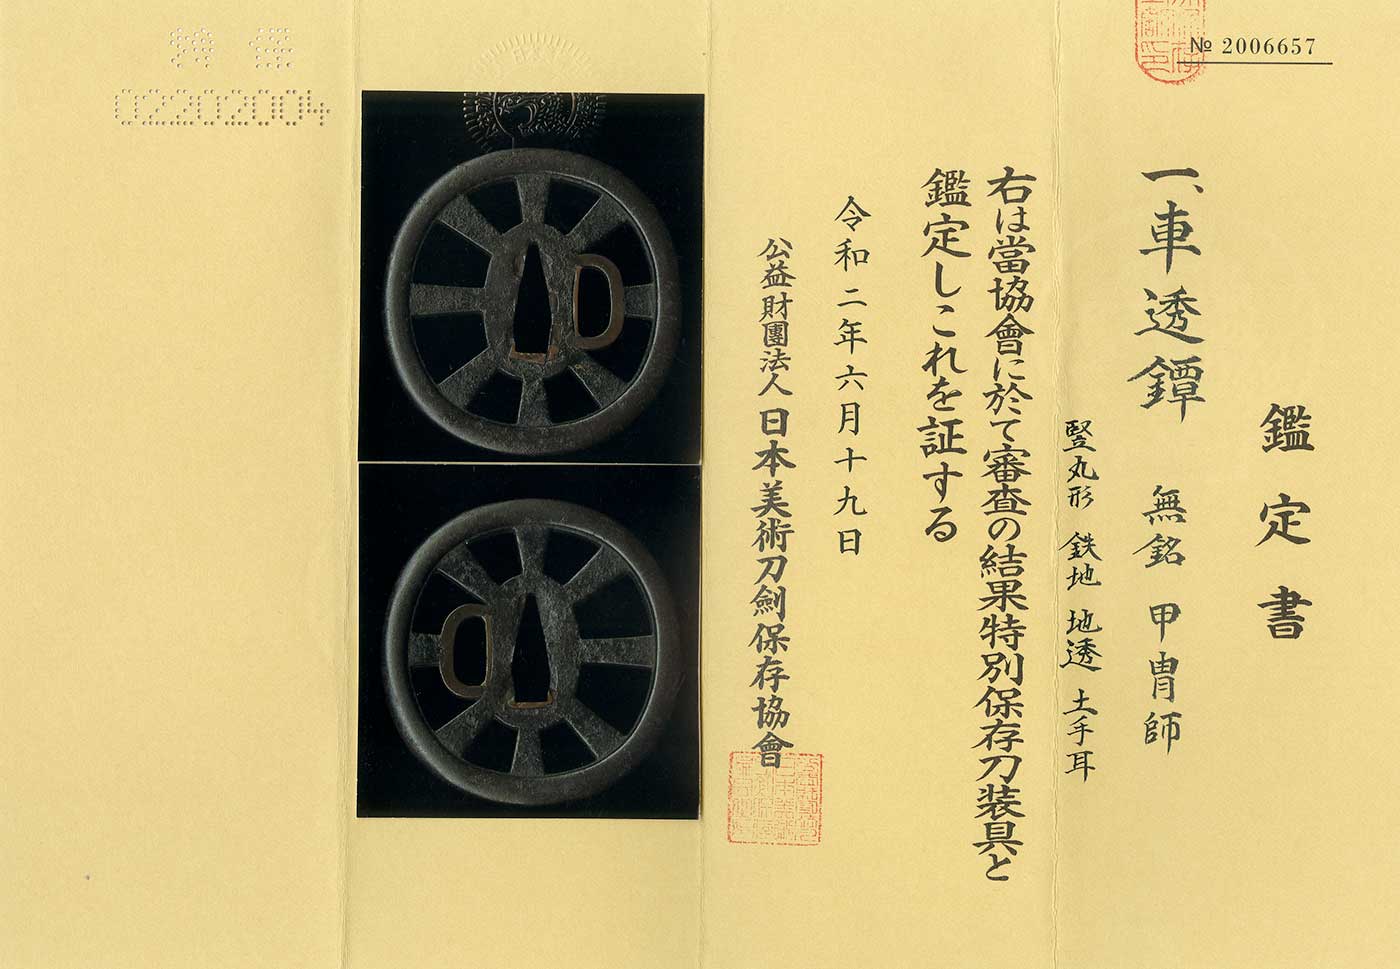 № 2006657
鑑定書
一、車透鐔 無銘 甲冑師
竪丸形 鉄地 地透 土手耳
右は當協會に於て審査の結果特別保存刀装具と
鑑定しこれを証する
令和二年六月十九日
公益財團法人 日本美術刀劍保存協會
02202004